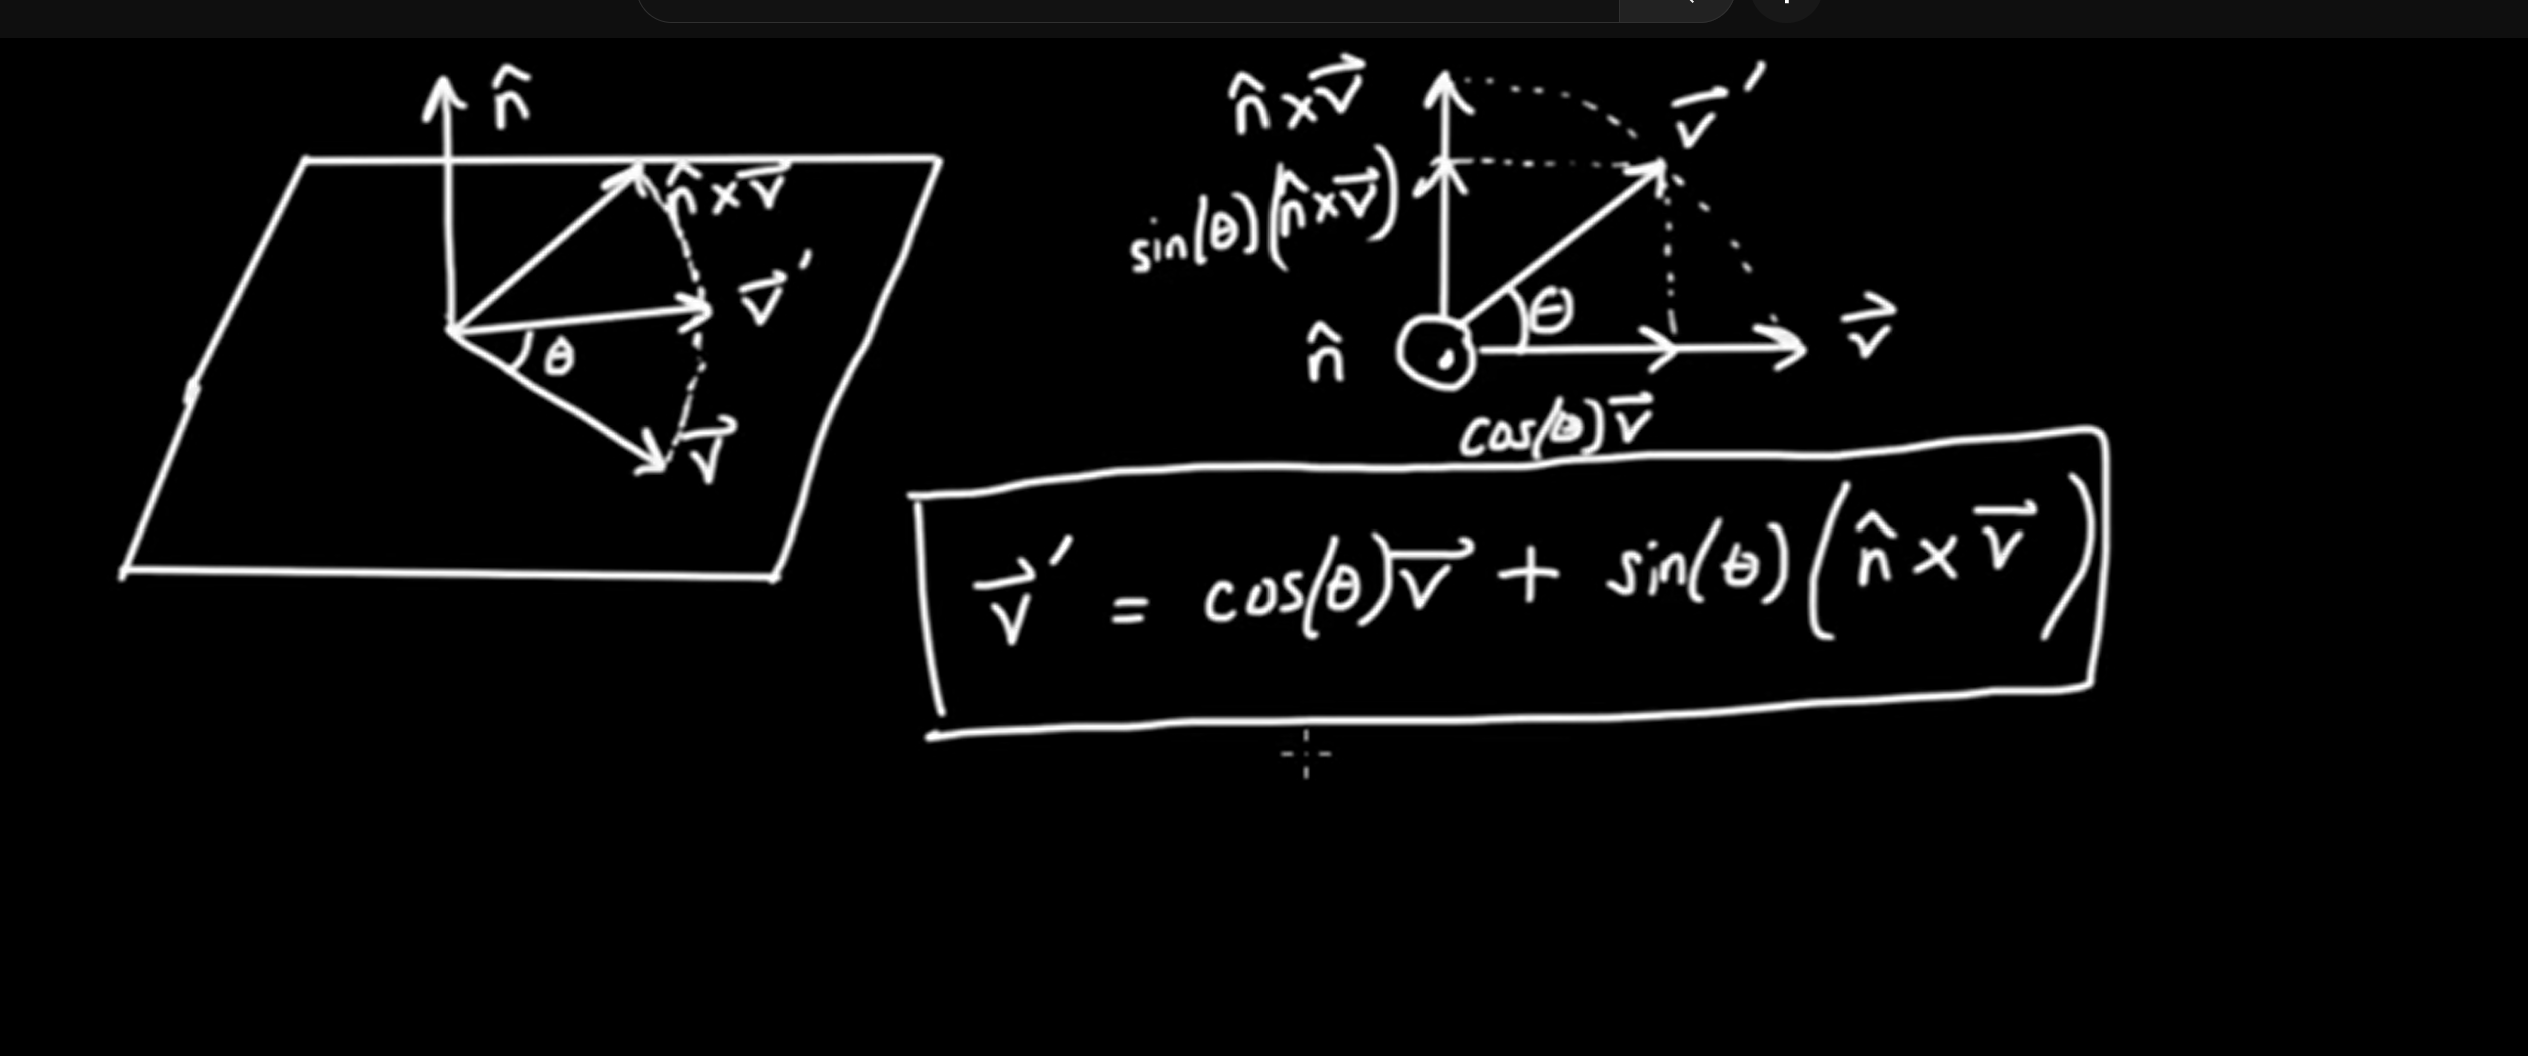 n̂
n̂ × v⃗
v⃗ ′
θ
v⃗
n̂ × v⃗
v⃗ ′
sin(θ)(n̂ × v⃗)
θ
n̂
v⃗
cos(θ)v⃗
v⃗ ′ = cos(θ)v⃗ + sin(θ)(n̂ × v⃗)